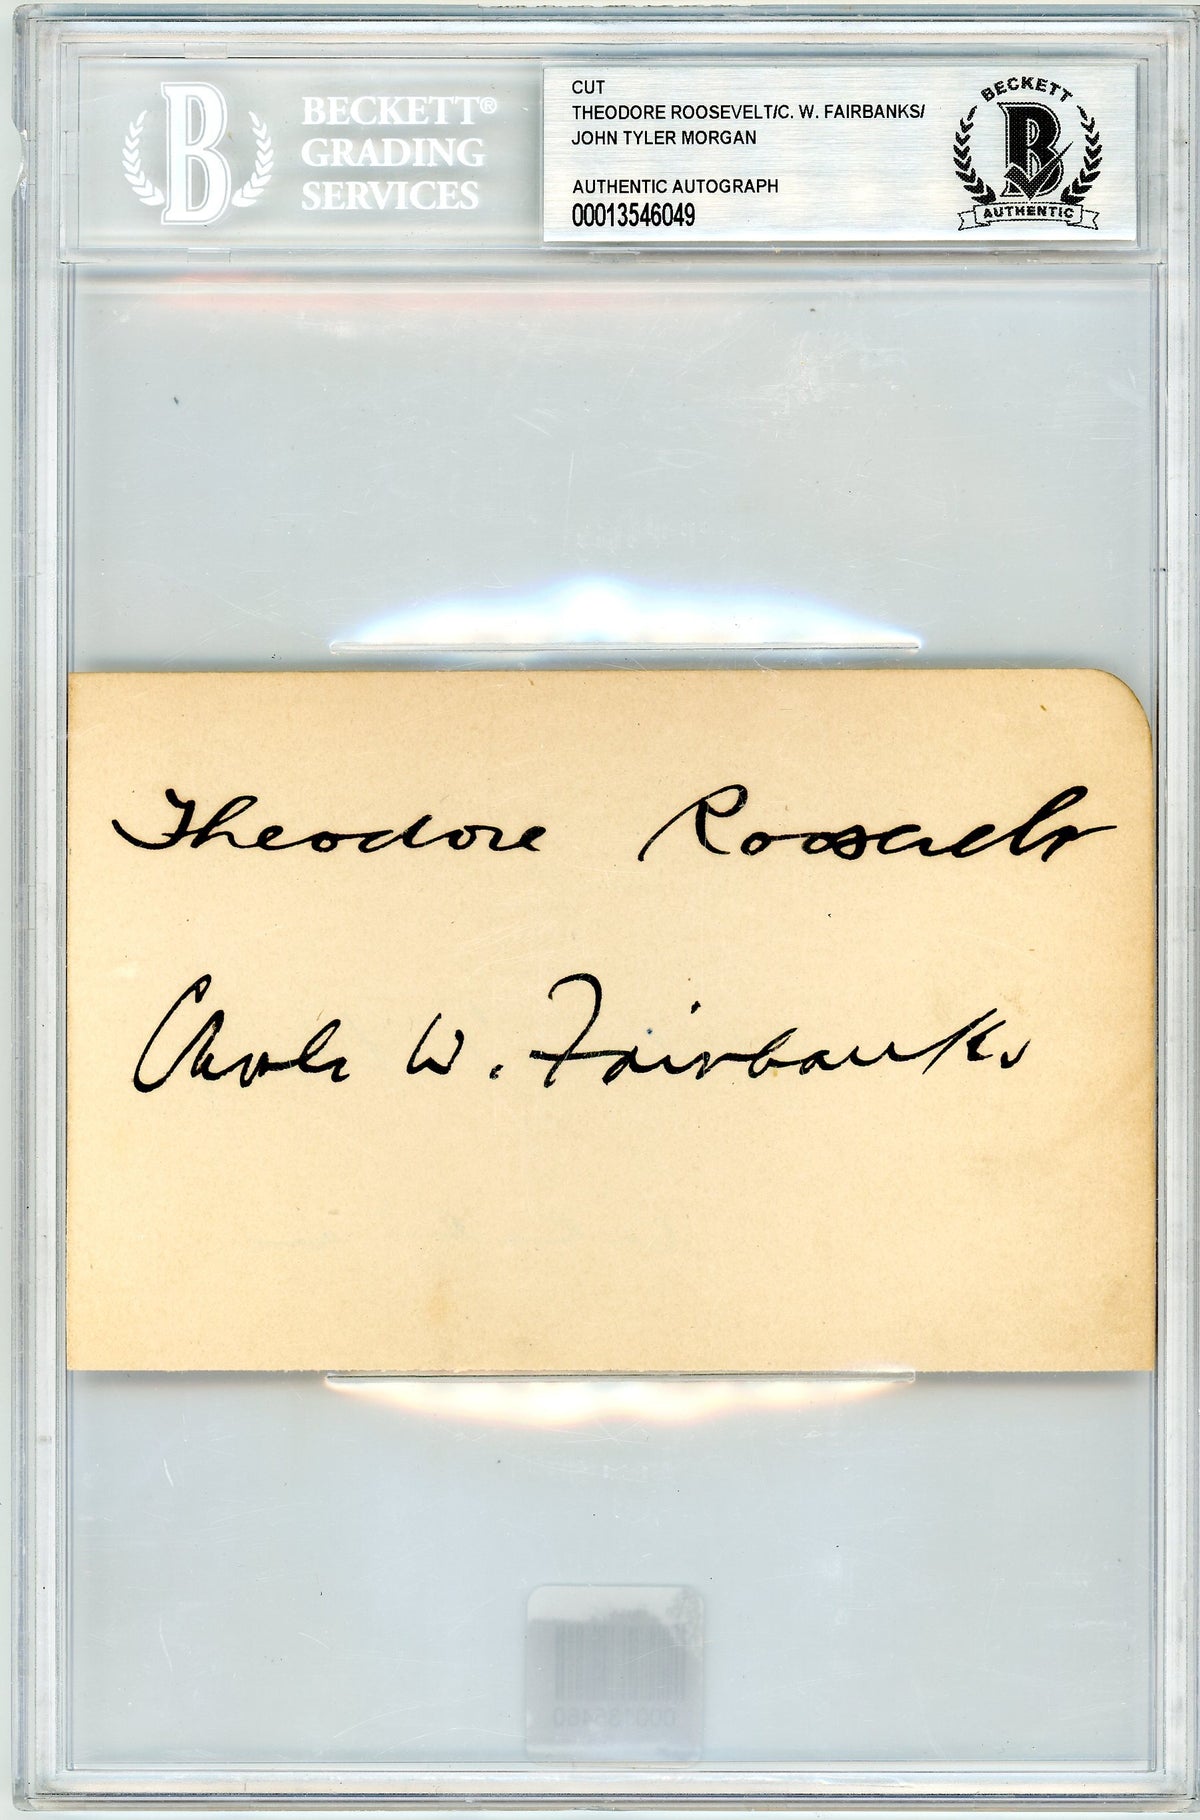 BECKETT®
GRADING
SERVICES
CUT
THEODORE ROOSEVELT/C. W. FAIRBANKS/
JOHN TYLER MORGAN
AUTHENTIC AUTOGRAPH
00013546049
BECKETT
B
AUTHENTIC
Theodore Roosevelt
Charles W. Fairbanks